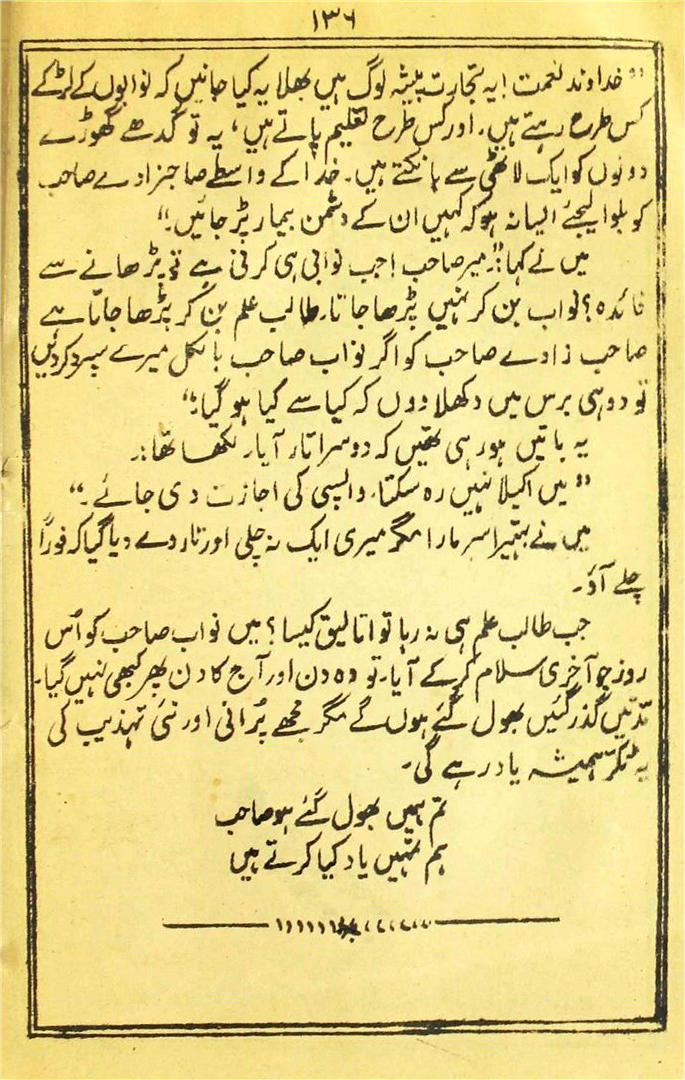 ۱۳۶
"خداوند نعمت! یہ تجارت پیشہ لوگ ہیں بھلا یہ کیا جانیں کہ نوابوں کے لڑکے
کس طرح رہتے ہیں۔ اور کس طرح تعلیم پاتے ہیں، یہ تو گدھے گھوڑے
دونوں کو ایک لاٹھی سے ہانکتے ہیں۔ خدا کے واسطے صاحبزادے صاحب
کو بلوا لیجئے ایسا نہ ہو کہ کہیں ان کے دشمن بیمار پڑ جائیں۔"
میں نے کہا:۔ "میر صاحب! جب نوابی ہی کرنی ہے تو پڑھانے سے
فائدہ؟ نواب بن کر نہیں پڑھا جاتا۔ طالب علم بن کر پڑھا جاتا ہے
صاحب زادے صاحب کو اگر نواب صاحب بالکل میرے سپرد کردیں
تو دو ہی برس میں دکھلا دوں کہ کیا سے کیا ہو گیا:"
یہ باتیں ہو رہی تھیں کہ دوسرا تار آیا۔ لکھا تھا:۔
"میں اکیلا نہیں رہ سکتا۔ واپسی کی اجازت دی جائے۔"
میں نے بہتیرا سر مارا مگر میری ایک نہ چلی اور تار دے دیا گیا کہ فوراً
چلے آؤ۔
جب طالب علم ہی نہ رہا تو اتالیق کیسا؟ میں نواب صاحب کو اُس
روز جو آخری سلام کرکے آیا۔ تو وہ دن اور آج کا دن پھر کبھی نہیں گیا۔
مدّتیں گذر گئیں بھول گئے ہوں گے مگر مجھے پُرانی اور نئی تہذیب کی
یہ ٹکّر ہمیشہ یاد رہے گی۔
تم ہمیں بھول گئے ہو صاحب
ہم تمہیں یاد کیا کرتے ہیں